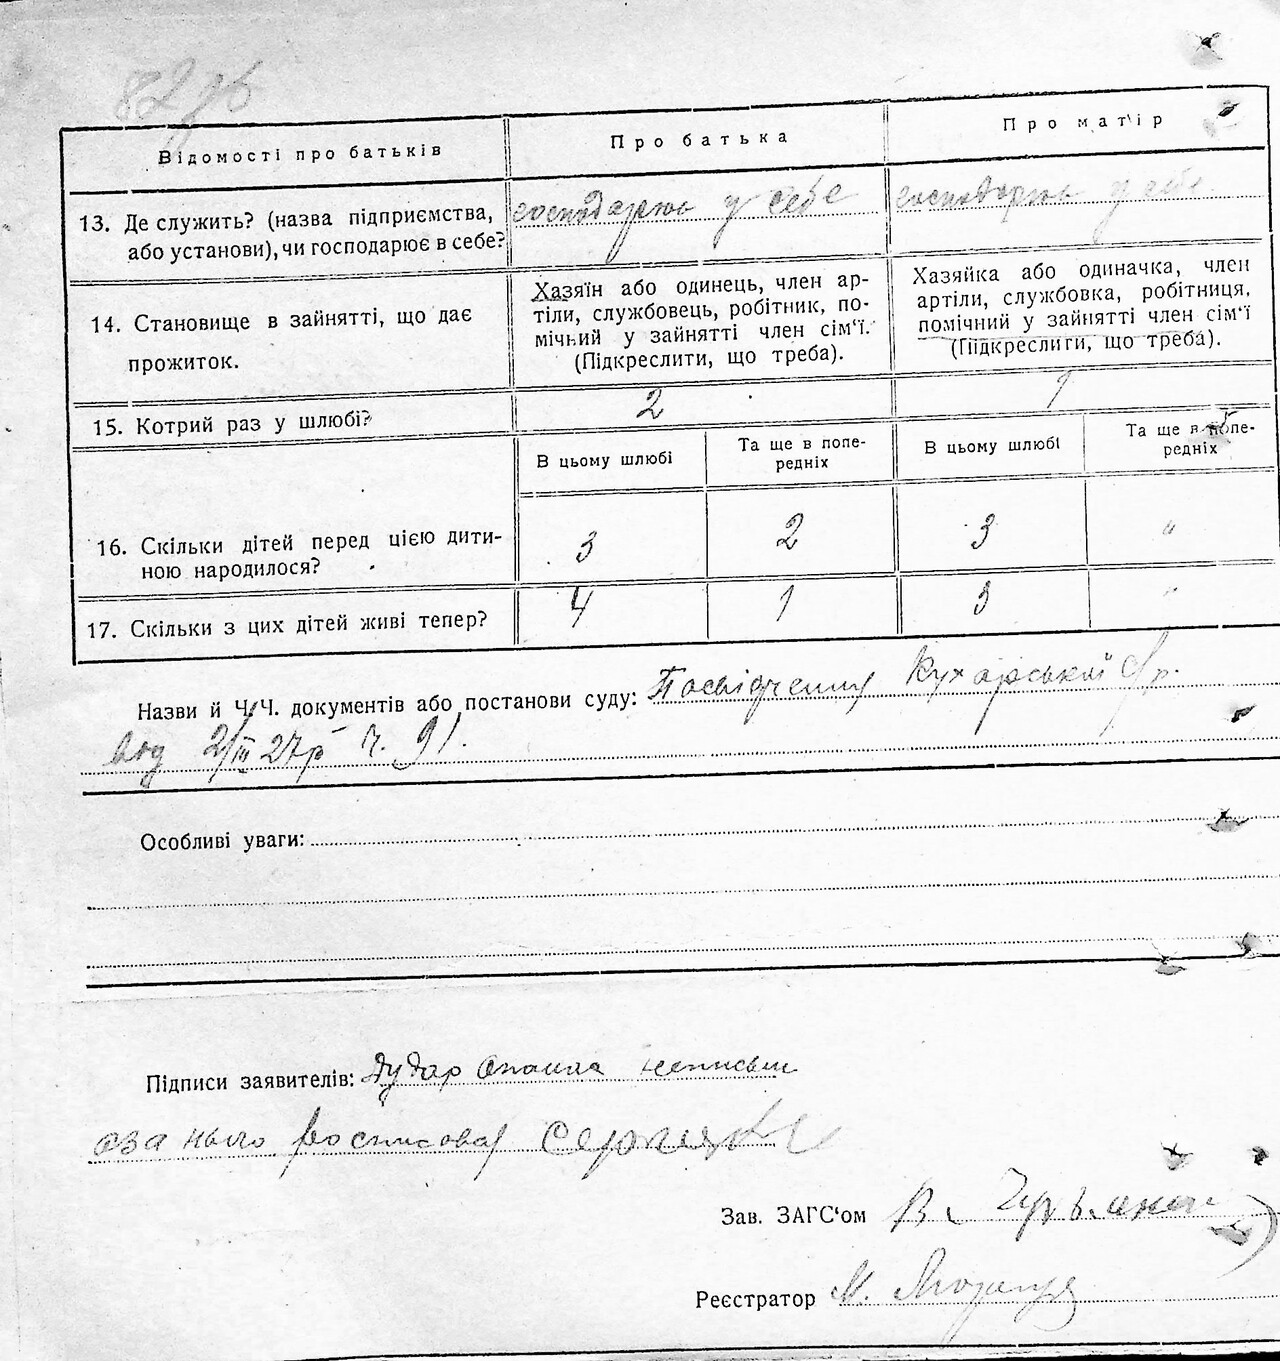 Відомості про батьків
Про батька
Про матір
13. Де служить? (назва підприємства,
або установи), чи господарює в себе?
господарює у себе
господарює у себе
14. Становище в зайнятті, що дає
прожиток.
Хазяїн або одинець, член ар-
тіли, службовець, робітник, по-
мічний у зайнятті член сім‘ї.
(Підкреслити, що треба).
Хазяйка або одиначка, член
артіли, службовка, робітниця,
помічний у зайнятті член сім‘ї
(Підкреслити, що треба).
15. Котрий раз у шлюбі?
2
1
В цьому шлюбі
Та ще в попе-
редніх
В цьому шлюбі
Та ще в попе-
редніх
16. Скільки дітей перед цією дити-
ною народилося?
3
2
3
"
17. Скільки з цих дітей живі тепер?
4
1
3
"
Назви й Ч.Ч. документів або постанови суду: Посвідчення Кухарський с/р.
від 2/III 27р Ч. 91.
Особливі уваги:
Підписи заявителів: Дудар неписьм
а за нього росписовся
Зав. ЗАГС‘ом В.
Реєстратор М.